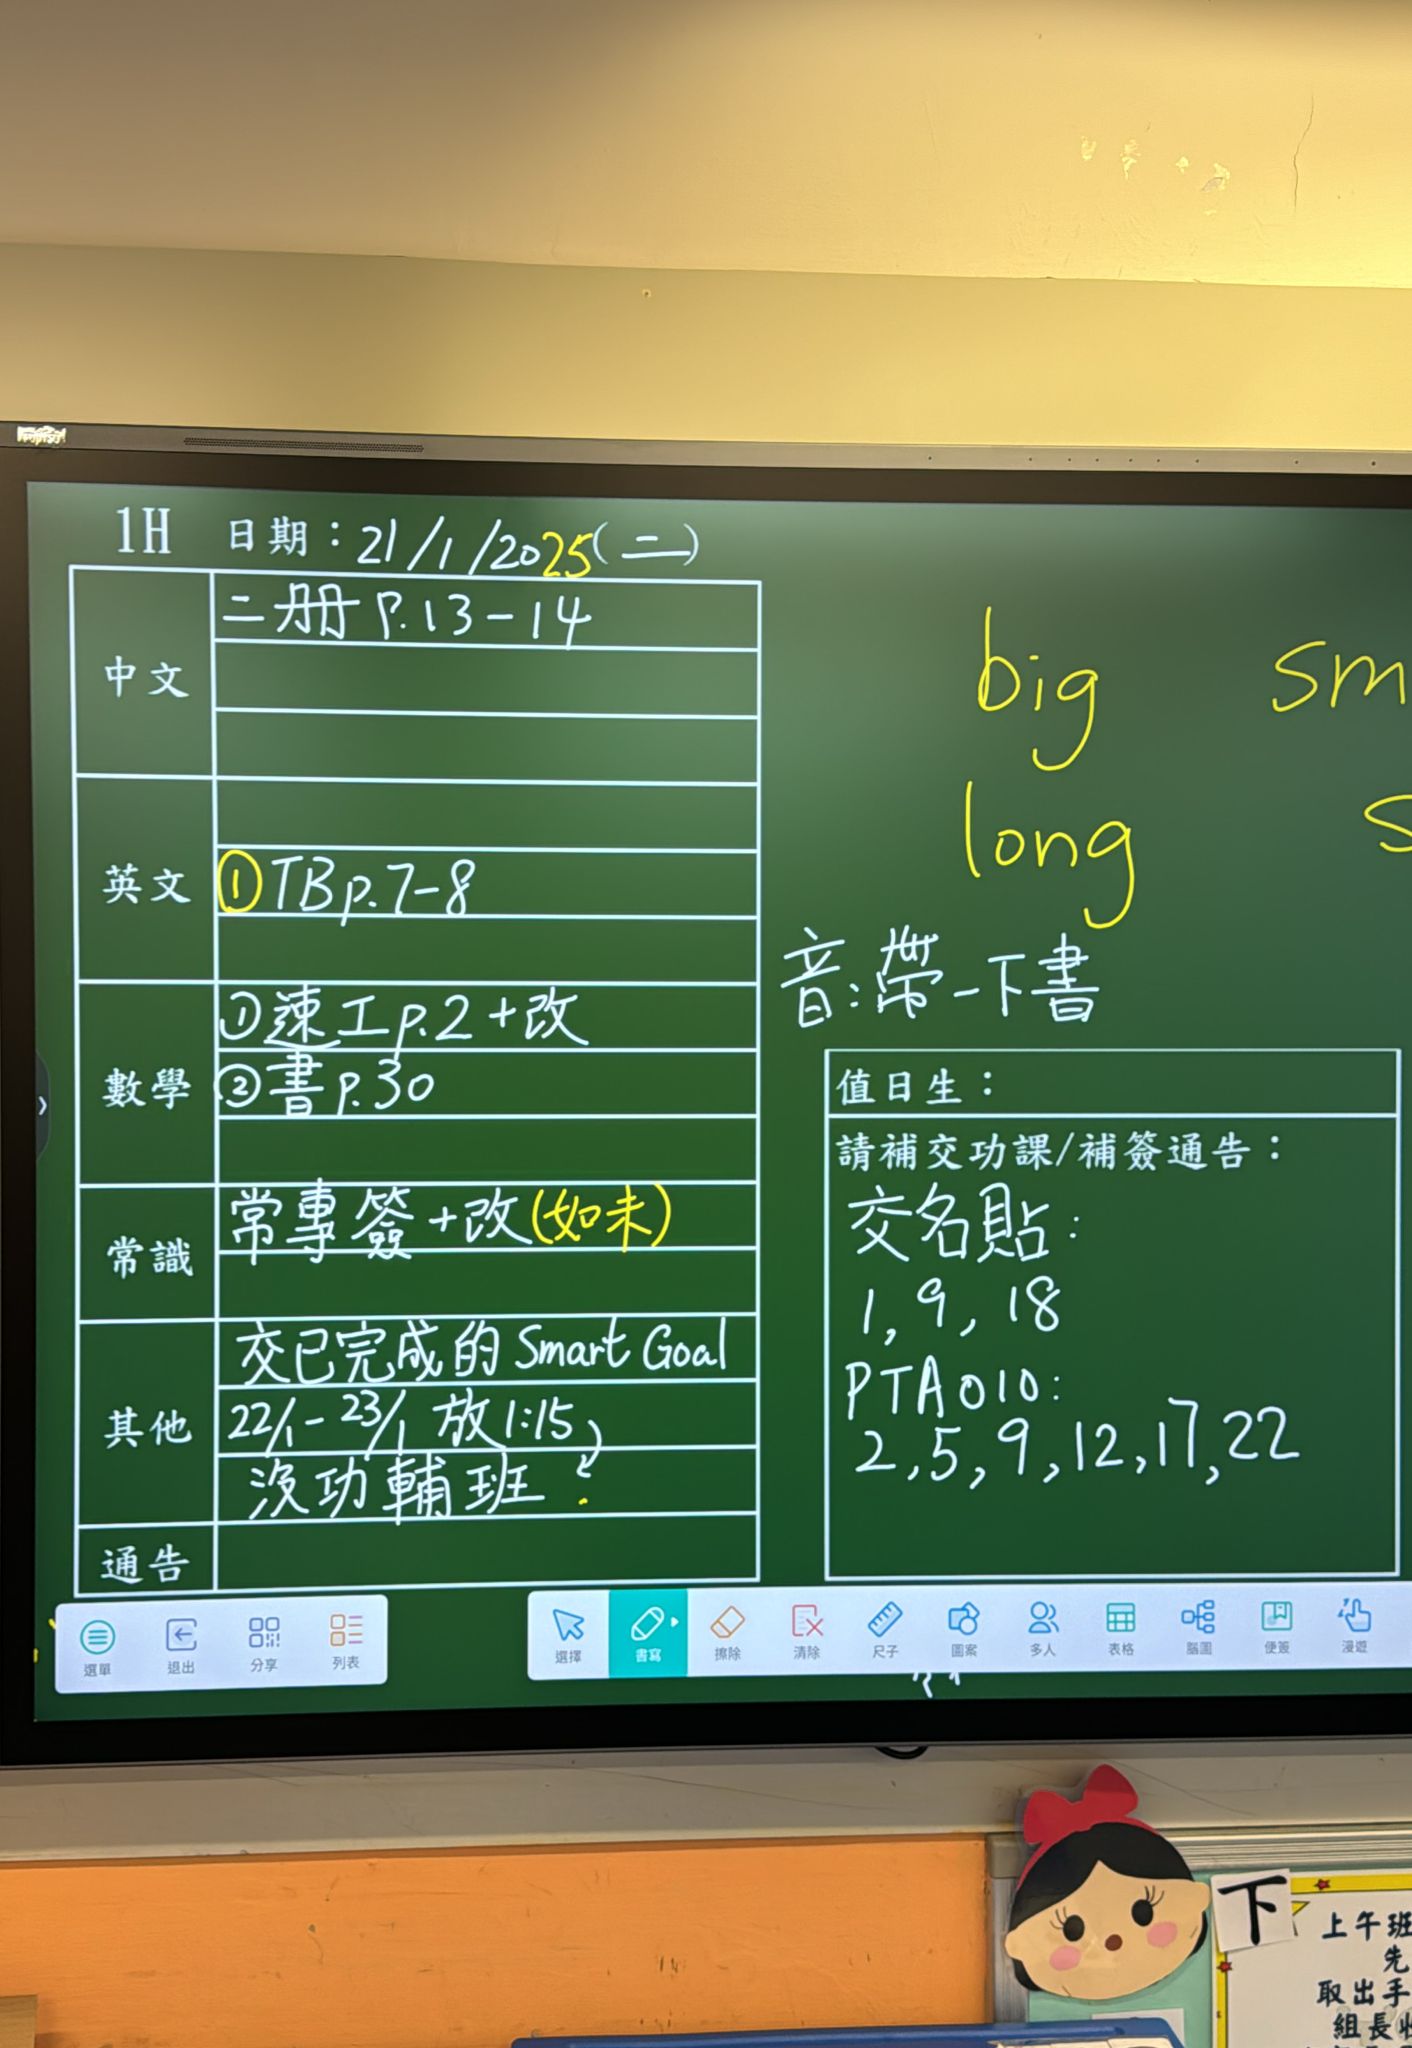 1H 日期：21/1/2025(二)
中文
二冊 P.13-14
英文
①TB p.7-8
數學
①速工p.2+改
②書p.30
常識
常專簽+改(如未)
其他
交已完成的 Smart Goal
22/1-23/1 放1:15
沒功輔班
通告
big sm
long s
音:帶一下書
值日生：
請補交功課/補簽通告：
交名貼:
1, 9, 18
PTA010:
2, 5, 9, 12, 17, 22
選單 退出 分享 列表
選擇 書寫 擦除 清除 尺子 圖案 多人 表格 腦圖 便簽 漫遊
下
上午班
先
取出手
組長收